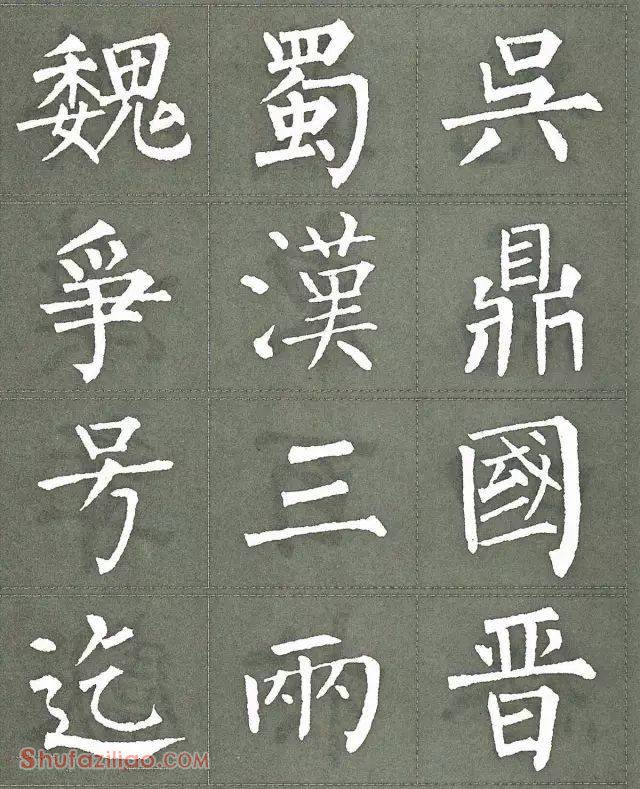 魏蜀吳
爭漢鼎
号三國
迄兩晋
Shufaziliao.com